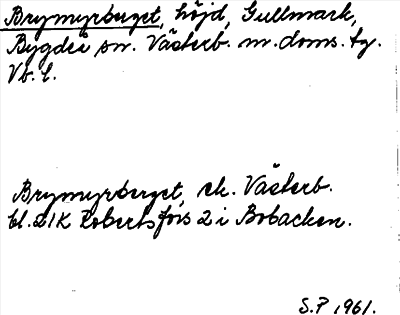 Brymyrberget, höjd, Gullmark,
Bygdeå sn. Västerb. m. doms. tg.
Vb. l.
Brymyrberget, ek. Västerb.
bl. 21K Robertsfors 2 i Bobacken.
S.P 1961.